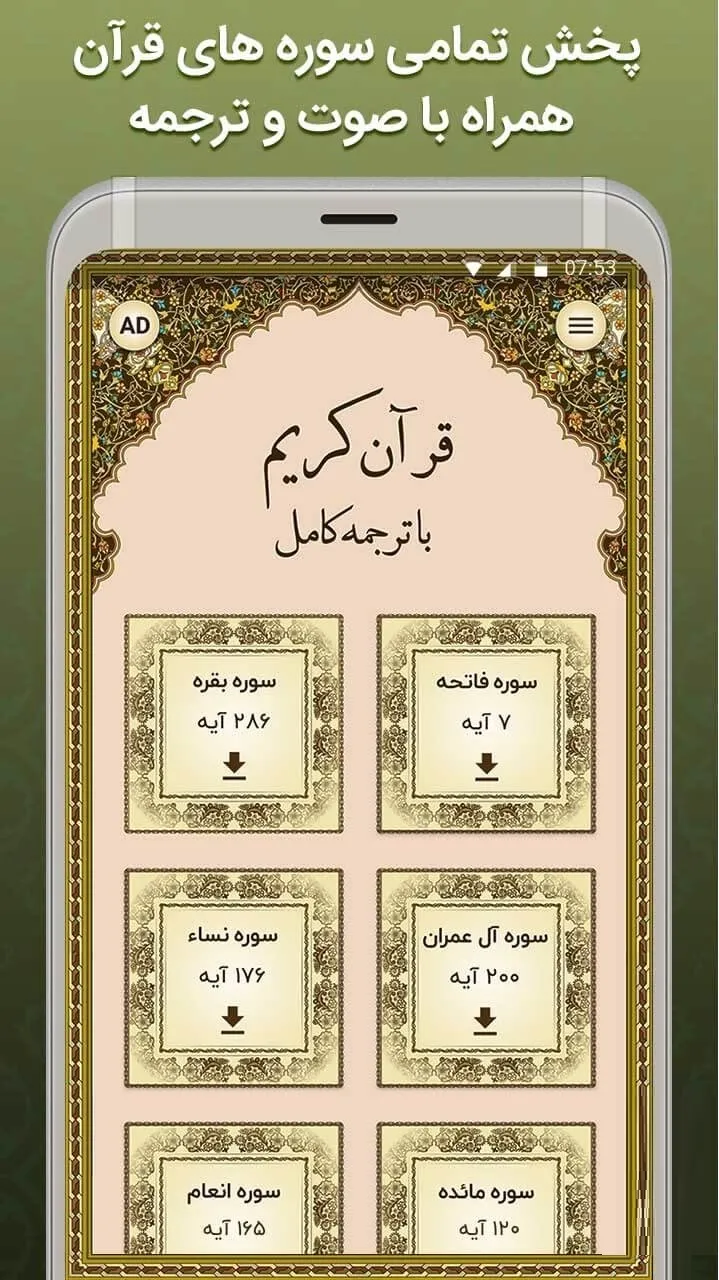 پخش تمامی سوره های قرآن
همراه با صوت و ترجمه
07:53
AD
قرآن کریم
با ترجمه کامل
سوره فاتحه
۷ آیه
سوره بقره
۲۸۶ آیه
سوره آل عمران
۲۰۰ آیه
سوره نساء
۱۷۶ آیه
سوره مائده
۱۲۰ آیه
سوره انعام
۱۶۵ آیه